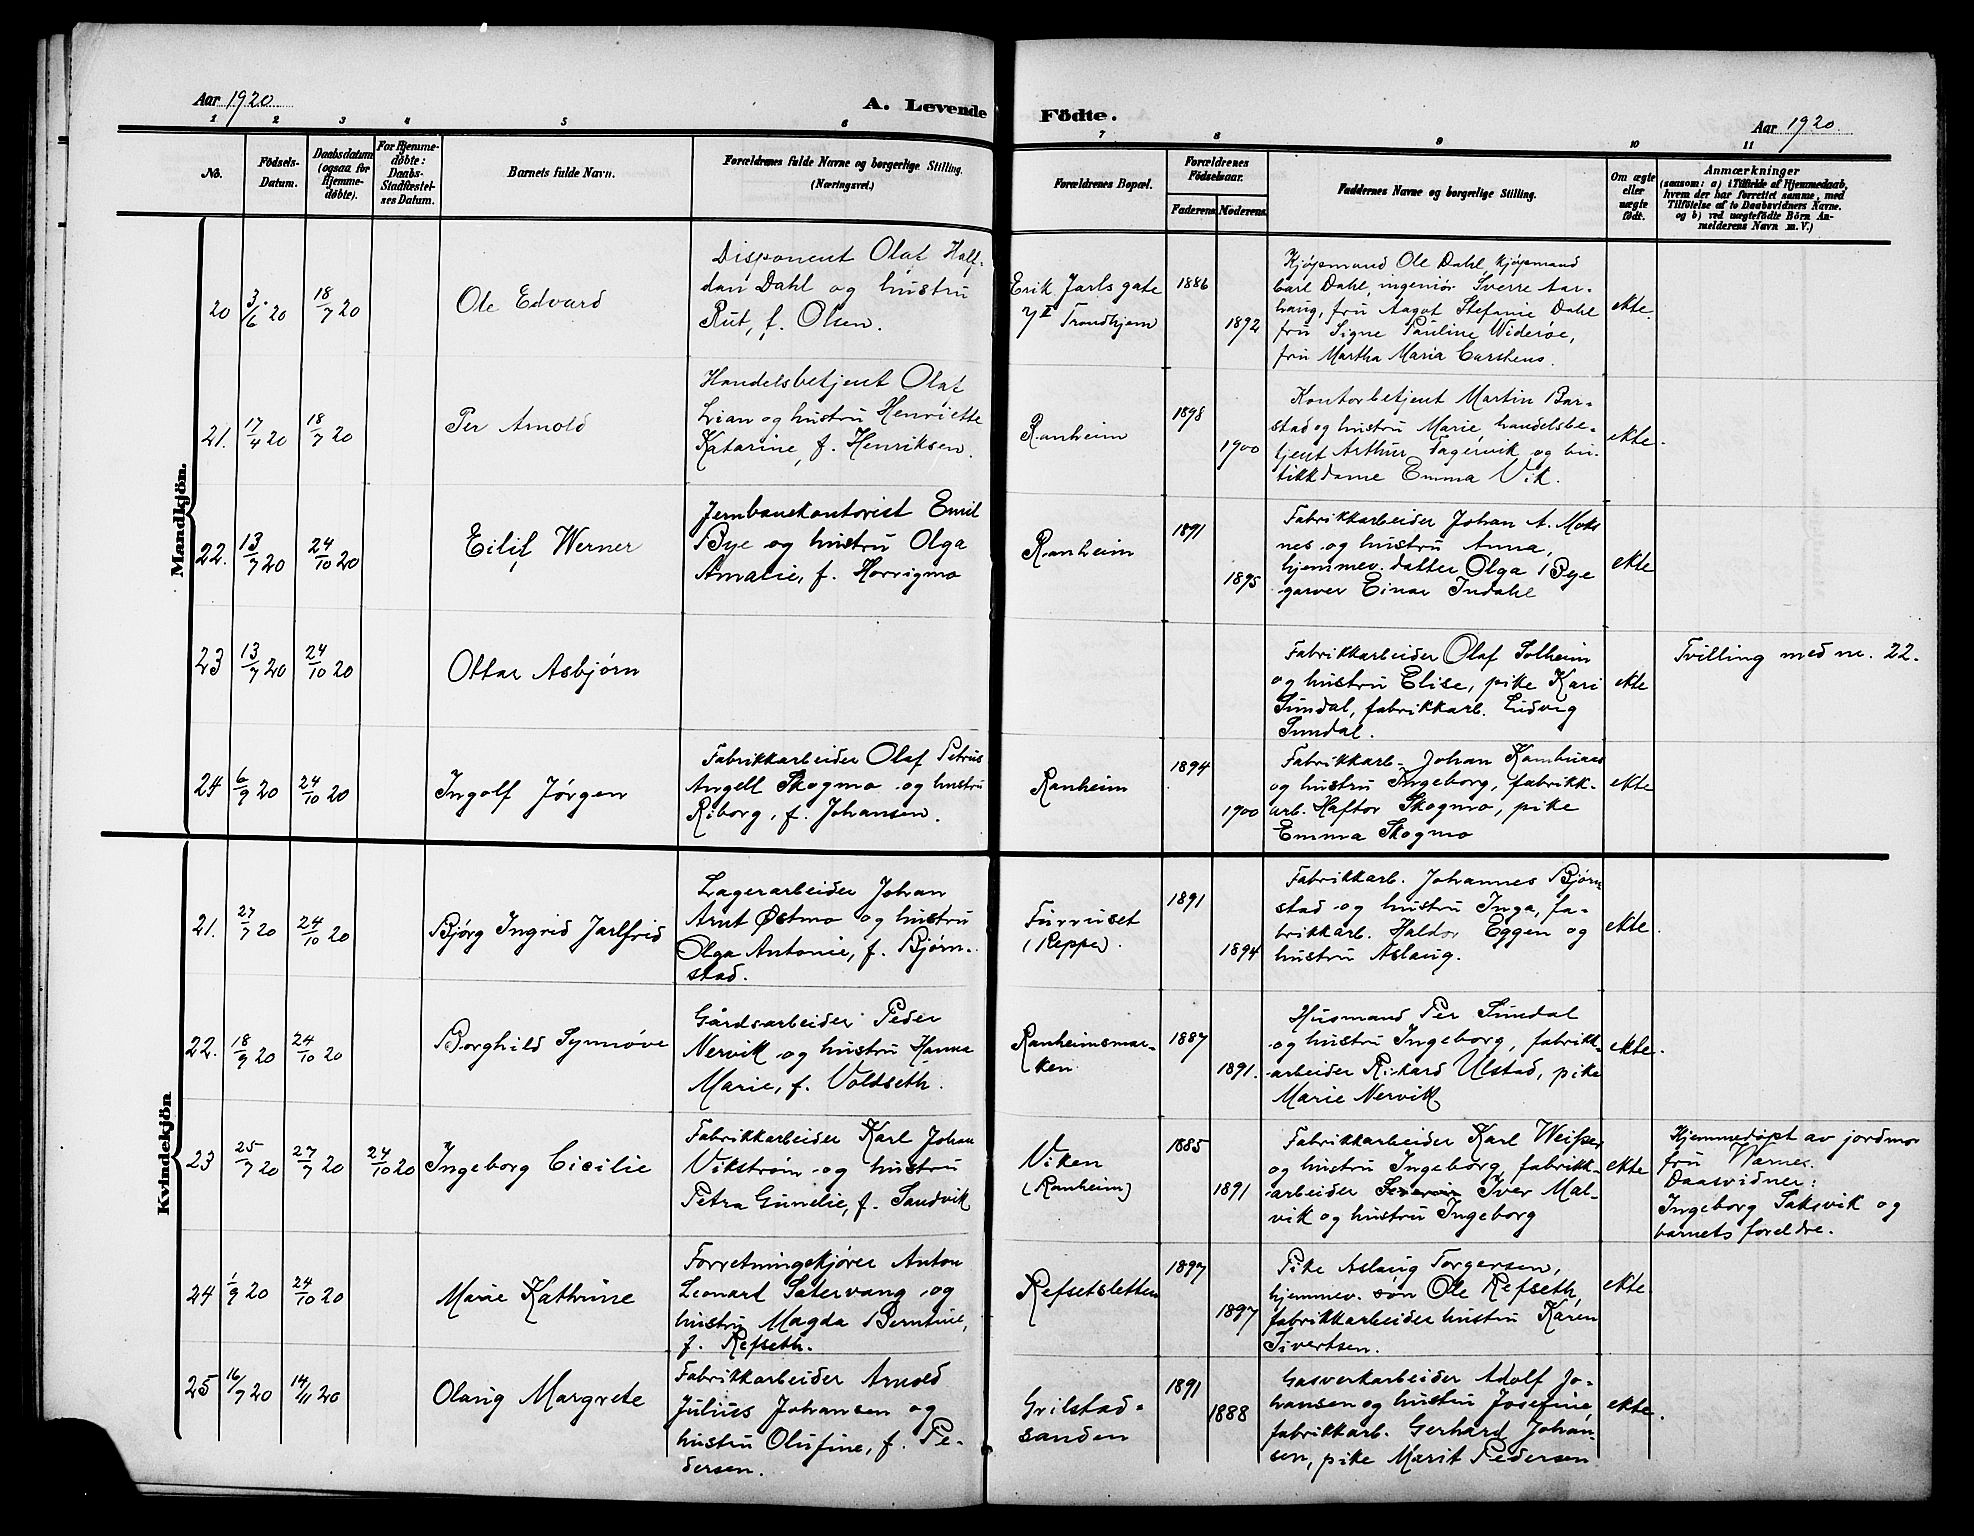 Aar 1920
A. Levende Födte.
Aar 1920
1 2 3 4 5 6 7 8 9 10 11
No.
Födsels-
Datum.
Daabsdatum
(ogsaa for
Hjemme-
døbte).
For Hjemme-
døbte:
Daabs-
Stadfæstel-
ses Datum.
Barnets fulde Navn.
Forældrenes fulde Navne og borgerlige Stilling.
(Næringsvei.)
Forældrenes Bopæl.
Forældrenes
Födselsaar.
Faderens
Moderens
Faddernes Navne og borgerlige Stilling.
Om ægte
eller
uægte
födt.
Anmærkninger
(saasom: a) i Tilfælde af Hjemmedaab,
hvem der har forrettet samme, med
Tilföielse af to Daabsvidners Navne.
og b) ved uægtefödte Börn An-
melderens Navn m. V.)
Mandkjön.
20 3/6 20 18/7 20
Ole Edvard
Disponent Olaf Half-
dan Dahl og hustru
Rut, f. Olsen.
Erik Jarls gate
7 II Trondhjem
1886
1892
Kjøpmand Ole Dahl, kjøpmand
Carl Dahl, ingeniør Sverre Aar-
haug, fru Aagot Stefanie Dahl
fru Signe Pauline Widerøe,
fru Martha Maria Carstens.
ekte.
21. 17/4 20 18/7 20
Per Arnold
Handelsbetjent Olaf
Lian og hustru Henriette
Katarine, f. Henriksen.
Ranheim
1898
1900
Kontorbetjent Martin Bar-
stad og hustru Marie, handelsbe-
tjent Arthur Fagervik og bu-
tikkdame Emma Vik.
ekte.
22. 13/7 20 24/10 20
Eilif Werner
Jernbanekontorist Emil
Bye og hustru Olga
Amalie, f. Horrigmo
Ranheim
1891
1895
Fabrikkarbeider Johan A. Moks
nes og hustru Anna,
hjemmev. datter Olga Bye
garver Einar Indahl
ekte
23 13/7 20 24/10 20
Ottar Asbjørn
Fabrikkarbeider Olaf Solheim
og hustru Elise, pike Kari
Sundal, fabrikkarb. Ludvig
Sundal.
ekte
Tvilling med nr. 22.
24 6/9 20 24/10 20
Ingolf Jørgen
Fabrikkarbeider Olaf Petrus
Angell Skogmo og hustru
Riborg, f. Johansen.
Ranheim
1894
1900
Fabrikkarb. Johan Kambuaas
og hustru Ingeborg, fabrikk-
arb. Haftor Skogmo, pike
Emma Skogmo
ekte
Kvindekjön
21. 27/7 20 24/10 20
Bjørg Ingrid Jarlfrid
Lagerarbeider Johan
Arnt Østmo og hustru
Olga Antonie, f. Bjørn-
stad.
Furruset
(Reppe).
1891
1894
Fabrikkarb. Johannes Bjørn
stad og hustru Inga, fa-
brikkarb. Haldor Eggen og
hustru Aslaug.
ekte.
22. 18/9 20 24/10 20
Borghild Synnøve
Gårdsarbeider Peder
Nervik og hustru Hanna
Marie, f. Voldseth.
Ranheimsmar-
ken
1887
1891.
Husmand Per Sundal
og hustru Ingeborg, fabrikk-
arbeider Rikard Ulstad, pike
Marie Nervik
ekte.
23 25/7 20 27/7 20 24/10 20
Ingeborg Cicilie
Fabrikkarbeider Karl Johan
Vikstrøm og hustru
Petra Gunelie, f. Sandvik
Viken
(Ranheim)
1885
1891
Fabrikkarbeider Karl Weisser
og hustru Ingeborg, fabrikk-
arbeider Iver Mal-
vik og hustru Ingeborg
ekte
Hjemmedøpt av jordmor
fru Warnes.
Daasvidner:
Ingeborg Saksvik og
barnets foreldre.
24 1/9 20 24/10 20
Marie Kathrine
Forretningskjører Anton
Leonard Satervang og
hustru Magda Berntine,
f. Refseth.
Refsetsletten
1897
1897
Pike Aslaug Torgersen,
hjemmev. søn Ole Refseth,
fabrikkarbeider hustru Karen
Sivertsen.
ekte.
25 16/7 20 14/11 20
Olaug Margrete
Fabrikkarbeider Arnold
Julius Johansen og
hustru Olufine, f. Pe-
dersen.
Grilstad-
sanden
1891
1888
Gasverkarbeider Adolf Jo-
hansen og hustru Josefine,
fabrikkarb. Gerhard Johan-
sen, pike Marit Pedersen
ekte.